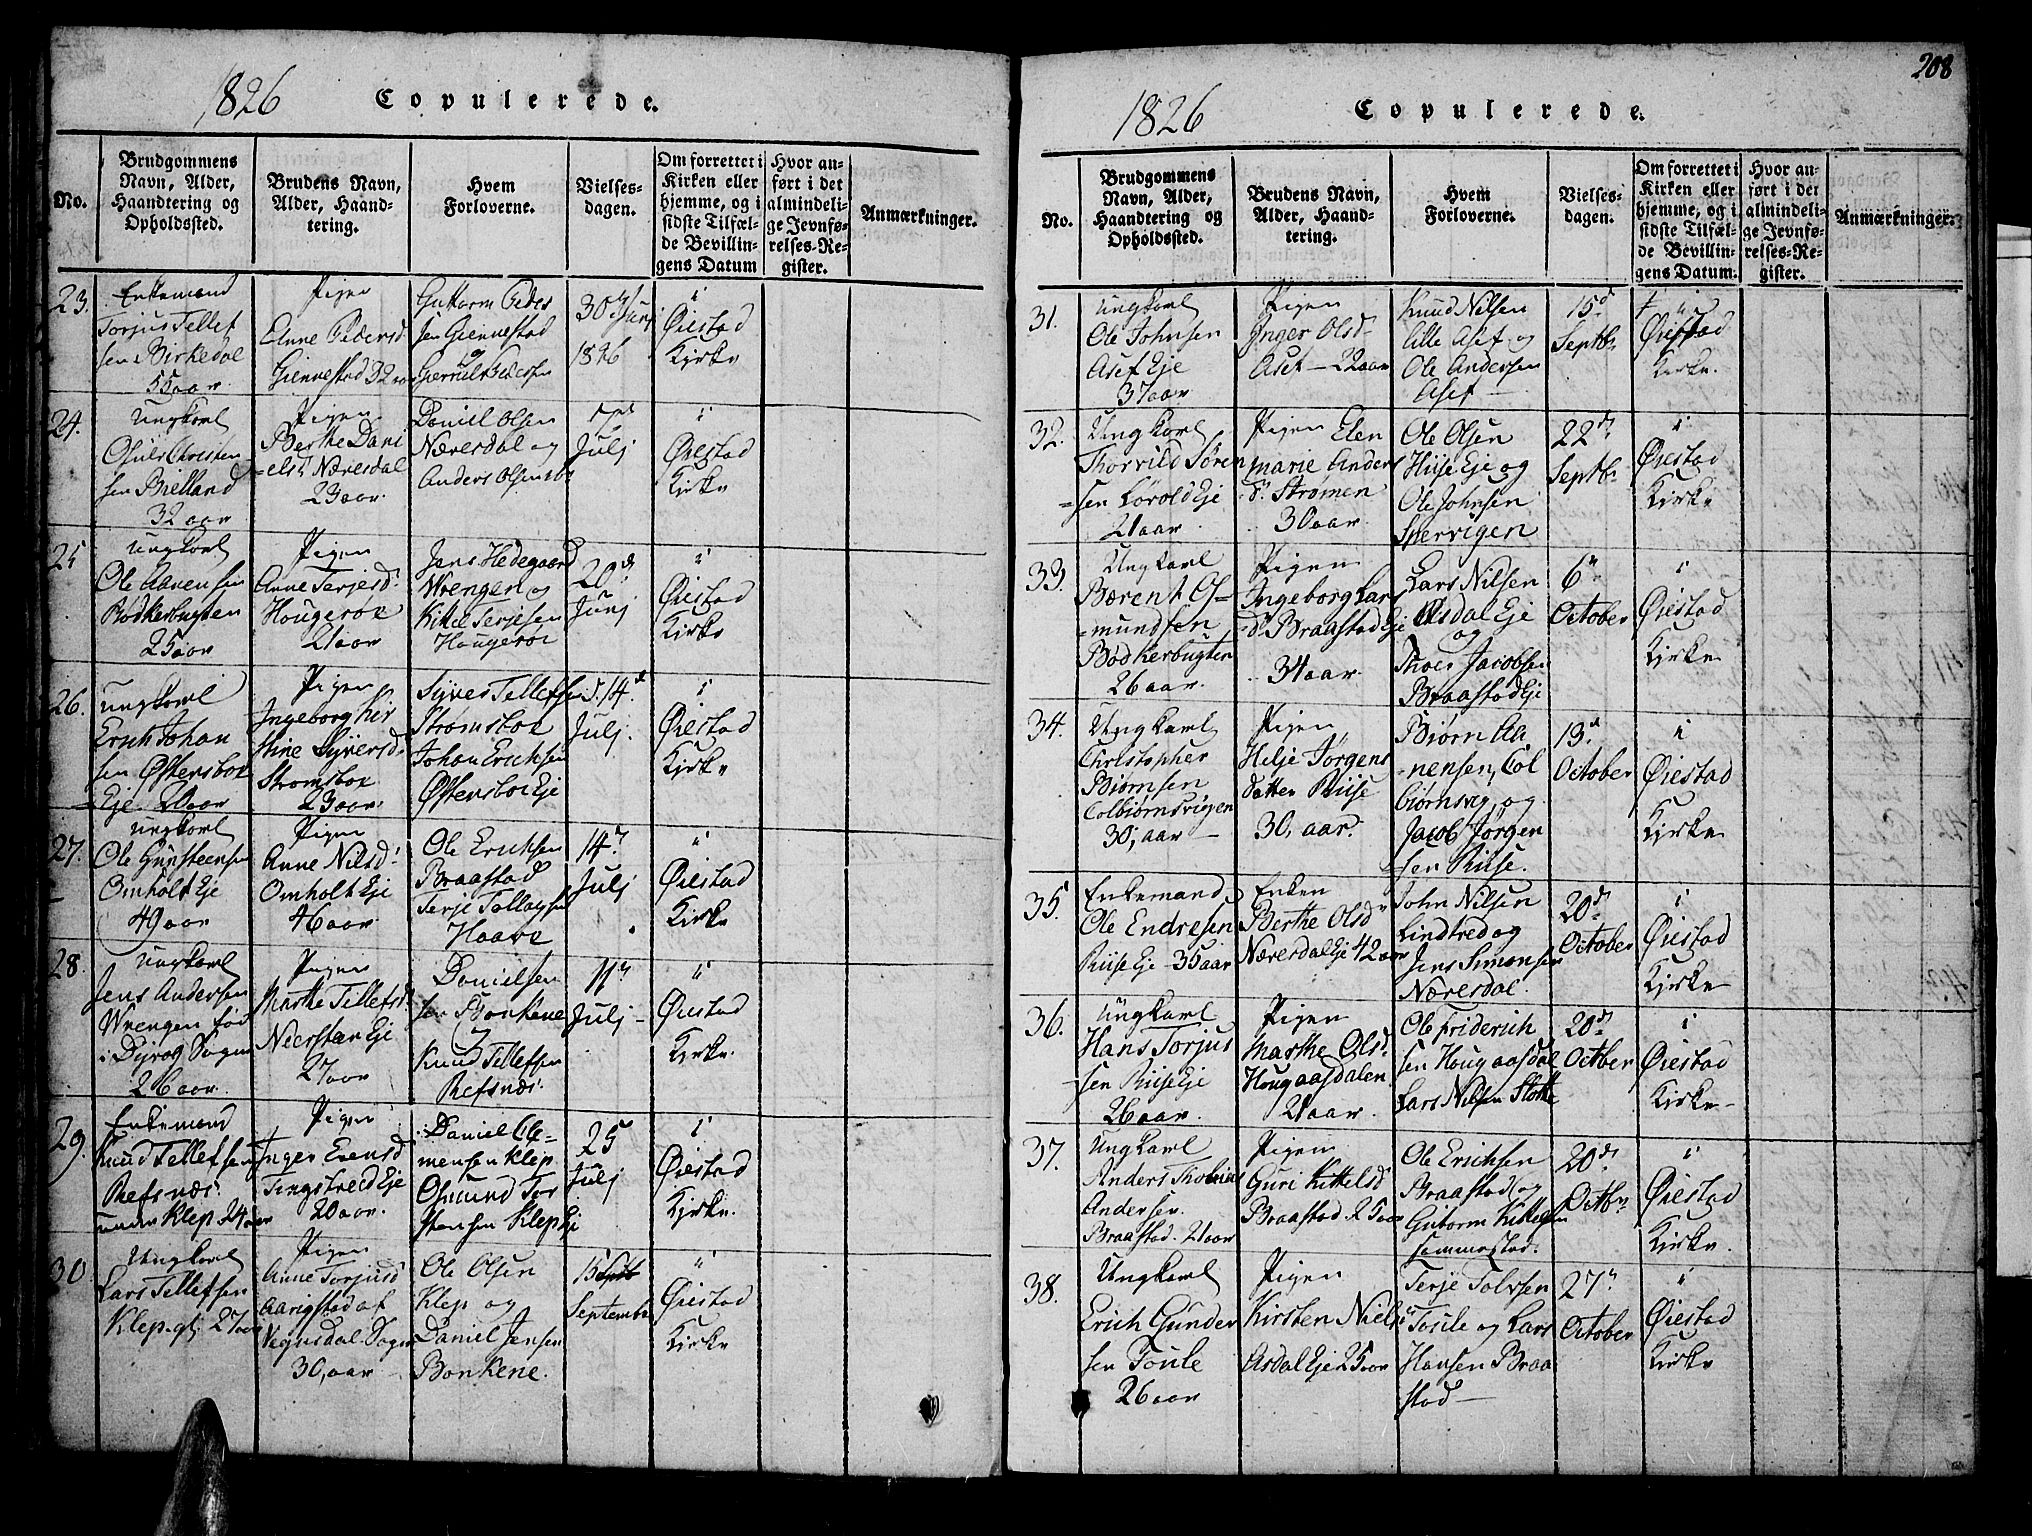 1826 Copulerede.
No.
Brudgommens
Navn, Alder,
Haandtering og
Opholdssted.
Brudens Navn,
Alder, Haand-
tering.
Hvem
Forloverne.
Vielses-
dagen.
Om forrettet i
Kirken eller
hjemme, og i
sidste Tilfæl-
de Bevillin-
gens Datum
Hvor an-
ført i det
almindeli-
ge Jevnfø-
relses-Re-
gister.
Anmærkninger.
23.
Enkemand
Torjus Tellef
sen Birkedal
55 aar
Pigen
Anne Peders
Giennestad 32 aar
Guttorm Peder
sen Giennestad
og
Pedersen
30 Junj
1826
i
Øiestad
Kirke
24.
Ungkarl
Christen
sen Bielland
32 aar
Pigen
Berthe Dani
elsd. Næresdal
23 aar.
Daniel Olsen
Næresdal og
Anders Olsen ibd
Julj
i
Øiestad
Kirke
25
Ungkarl
Ole Aavensen
Bødkerbugten
25 aar
Pigen
Anne Terjesd.
Hougeroe
21 aar
Jens Hedegaard
Wrengen og
Kittel Terjesen
Hougeroe
20d
Junj
i
Øiestad
Kirke
26.
Ungkarl
Erich Johan
sen Østensboe
Eje 20 aar
Pigen
Ingeborg Kir
stine Syversd.
Stromsboe
23 aar.
Syver Tellefsen
Strømsboe
Johan Erichsen
Østensboe Eje
14d
Julj.
i
Øiestad
Kirke
27.
Ungkarl
Ole Gunsteensen
Omholt Eje
49 aar
Pigen
Anne Nilsd.
Omholt Eje
46 aar
Ole Erichsen
Braastad
Terje Tellefsen
Haave
14d
Julj
i
Øiestad
Kirke
28.
Ungkarl
Jens Andersen
Wrengen fød
i Dyvog Sogn
26 aar.
Pigen
Marthe Tellefsd.
Neersteen Eje
27 aar
Danielsen
sen Bonkene
Knud Tellefsen
Refsnæs.
11d
Julj
i
Øiestad
Kirke.
29.
Enkemand
Knud Tellefsen
Refsnæs.
under Klep 24 aar
Pigen
Inger Evensd
Tingstved Eje
20 aar.
Daniel Cle-
mensen Klep
Osmund Tor
stensen Klep Eje
25
Julj
i
Øiestad
Kirke.
30
Ungkarl
Lars Tellefsen
Klep. gl. 27 aar
Pigen
Anne Torjusd
Aarigstad af
Vegusdal Sogn
30, aar
Ole Olsen
Klep og
Daniel Jensen
Bonkene.
15
September
i
Øiestad
Kirke
208
1826 Copulerede.
No.
Brudgommens
Navn, Alder,
Haandtering og
Opholdssted.
Brudens Navn,
Alder, Haand-
tering.
Hvem
Forloverne.
Vielses-
dagen.
Om forrettet i
Kirken eller
hjemme, og i
sidste Tilfæl-
de Bevillin-
gens Datum.
Hvor an-
ført i det
almindeli-
ge Jevnfø-
relses-Re-
gister.
Anmærkninger.
31.
Ungkarl
Ole Johnsen
Asef Eje
37 aar
Pigen
Inger Olsd.
Asef — 22 aar
Knud Nilsen
Lille Asef og
Ole Andersen
Asef —
15d
Septbr
i
Øiestad
Kirke.
32.
Ungkarl
Thorvild Søren
sen Lørold Eje
21 aar.
Pigen Elen
Marie Anders
d. Strømen
30 aar.
Ole Olsen
Huse Eje og
Ole Johnsen
Spervigen
22d.
Septbr
i
Øiestad
Kirke
33.
Ungkarl
Bærent Os-
mundsen
Bødkerbugten
26 aar.
Pigen
Ingeborg Lars
d. Braastad Eje
34 aar.
Lars Nilsen
Asdal Eje
og
Thoer Jacobsen
Braastad Eje
6d
October
i
Øiestad
Kirke
34.
Ungkarl
Christopher
Biørnsen
Colbiørnsvigen
30, aar —
Pigen
Helje Jørgens
datter Riise
30, aar.
Biørn Aa
nensen, Col
biørnsvig, og
Jacob Jørgen
sen Riise.
13d
October
i
Øiestad
Kirke
35.
Enkemand
Ole Endresen
Riise Eje 35 aar
Enken
Berthe Olsd
Næresdal Eje 42 aar
John Nilsen
Lindtved og
Jens Simonsen
Næresdal.
20d
October
i
Øiestad
Kirke
36.
Ungkarl
Hans Torjus
sen Riise Eje
26 aar.
Pigen
Marthe Olsd.
Hougaasdalen
21 aar.
Ole Friderich
sen Hougaasdal
Lars Nilsen Slotte
20d
October
i
Øiestad
Kirke
37.
Ungkarl
Anders Thobias
Andersen
Braastad. 21 aar
Pigen
Guri Kittelsd
Braastad. 25 aar
Ole Erichsen
Braastad og
Gutorm Kittelsen
Sommestad.
20d.
Octbr
i
Øiestad
Kirke.
38.
Ungkarl
Erich Gunder
sen Toule
26 aar
Pigen
Kirsten Niels
Asdal Eje 25 aar
Terje Tolvsen
Toule og Lars
Hansen Braa
stad —
27d
October
i
Øiestad
Kirke